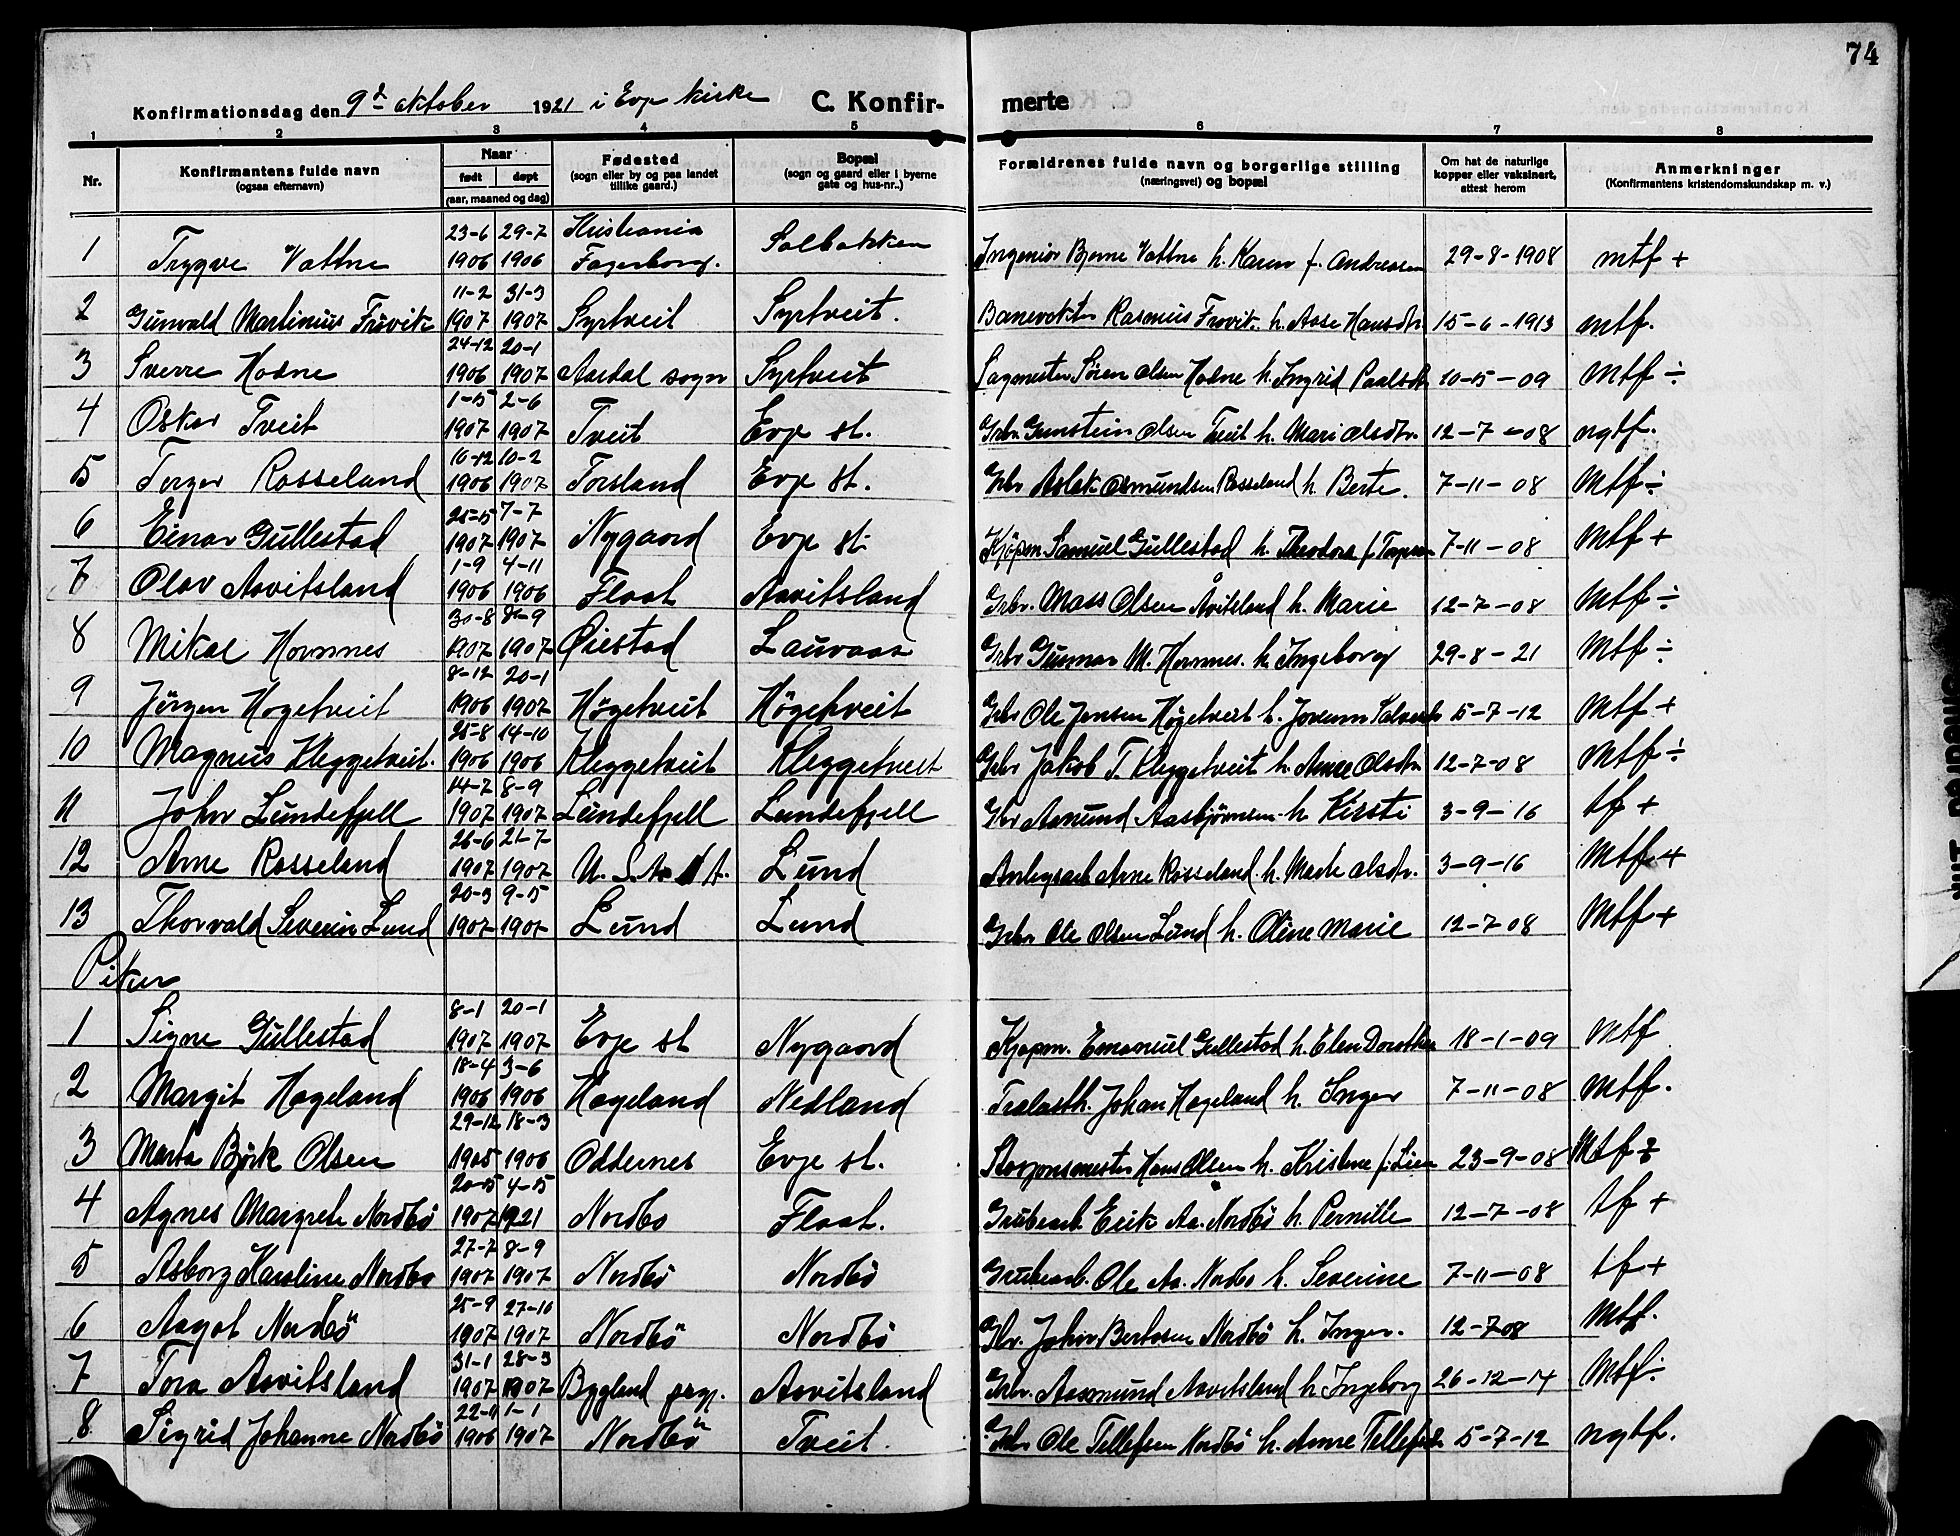 74
Konfirmationsdag den 9d oktober 1921 i Evje kirke C. Konfir- merte
1 2 3 4 5 6 7 8
Nr. Konfirmantens fulde navn (ogsaa efternavn) Naar født døpt (aar, maaned og dag) Fødested (sogn eller by og paa landet tillike gaard.) Bopæl (sogn og gaard eller i byerne gate og hus-nr.) Forældrenes fulde navn og borgerlige stilling (næringsvei) og bopæl Om hat de naturlige kopper eller vaksinert, attest herom Anmerkninger (Konfirmantens kristendomskundskap m. v.)
23-6 29-7 Kristiania
1 Trygve Vattne 1906 1906 Fagerborg. Solbakken Ingeniør Bjarne Vattne h. Karen f. Andreassen 29-8-1908 mtf +
11-2 31-3
2 Gunvald Martinius Frøvik 1907 1907 Syrtveit Syrtveit. Banevokter Rasmus Frøvik h. Aase Hansdtr 15-6-1913 mtf.
24-12 20-1
3 Sverre Hodne 1906 1907 Aardal sogn Syrtveit Sagmester Søren Olsen Hodne h. Ingrid Paalsdtr 10-5-09 mtf ÷
1-5 2-6
4 Oskar Tveit 1907 1907 Tveit Evje st. Grbr. Gunstein Olsen Tveit h. Mari Olsdtr. 12-7-08 ngtf.
10-12 10-2
5 Terger Rosseland 1906 1907 Forsland Evje st. Grbr Aslak Osmundsen Rosseland h. Berte. 7-11-08 Mtf ÷
25-5 7-7
6 Einar Gullestad 1907 1907 Nygaard Evje st. Kjøpm. Samuel Gullestad h. Theodora f. 7-11-08 mtf +
1-9 4-11
7 Olav Aavitsland 1906 1906 Flaat Aavitsland Grbr. Mass Olsen Åvitsland h. Marie 12-7-08 mtf ÷
30-8 -9
8 Mikal Hornnes 1907 1907 Øiestad Lauvaas Grbr Gunnar M. Hornnes. h. Ingeborg 29-8-21 Mtf ÷
8-12 20-1
9 Jørgen Hogetveit 1906 1907 Høgetveit Høgetveit Grbr Ole Jensen Høgetveit h. Jorunn 5-7-12 Mtf +
25-8 14-10
10 Magnus Kleggetveit. 1906 1906 Kleggetveit Kleggetveit Grbr Jakob T. Kleggetveit h. Anne Olsdtr 12-7-08 Mtf ÷
14-7 8-9
11 John Lundefjell 1907 1907 Lundefjell Lundefjell Gbr Aanund Aasbjørnsen h. Kirsti 3-9-16 tf +
26-6 21-7
12 Arne Rosseland 1907 1907 U. S. A. Lund Anlegsarb Arne Rosseland. h. Marte Olsdtr. 3-9-16 Mtf +
20-3 9-5
13 Thorvald Severin Lund 1907 1907 Lund Lund Grbr Ole Olsen Lund h. Oline Marie 12-7-08 Mtf +
Piker
8-1 20-1
1 Signe Gullestad 1907 1907 Evje st Nygaard Kjøpm. Emanuel Gullestad h. Elen Dorothea 18-1-09 Mtf
18-4 3-6
2 Margit Hageland 1906 1906 Hageland Nedland Trælasth. Johan Hageland h. Inger 7-11-08 Mtf.
29-12 18-3
3 Marta Bjørk Olsen 1905 1906 Oddernes Evje st. Stasjonsmester Hans Olsen h. Kristine f. Lien 23-9-08 Mtf ÷
20-5 4-5
4 Agnes Margrete Nordbø 1907 1921 Nordbo Flaat. Grubearb. Erik Aa. Nordbø h. Pernille 12-7-08 tf +
27-7 8-9
5 Asborg Karoline Nordbo 1907 1907 Nordbø Nordbø Grubearb. Ole Aa. Nordbo h. Severine 7-11-08 tf +
25-9 27-10
6 Aagot Nordbø 1907 1907 Nordbø Nordbø Gbr. John Bertosen Nordbø h. Inger. 12-7-08 Mtf.
31-1 28-3
7 Tora Aavitsland 1907 1907 Bygland prgj. Aavitsland Grbr. Aasmund Aavitsland h Ingeborg 26-12-14 Mtf ÷
22-11 1-1
8 Sigrid Johanne Nordbø 1906 1907 Nordbø Tveit. Grbr Ole Tellefsen Nordbø h. Anne 5-7-12 ngtf.